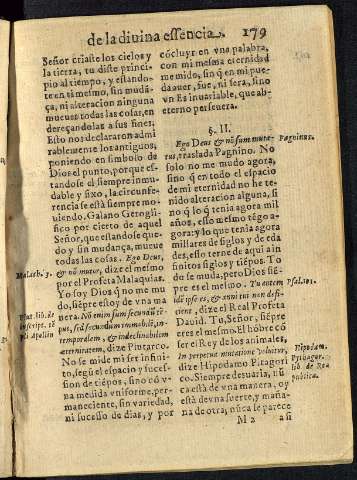 de la diuina essencia. 179
Señor criaste los cielos y
la tierra, tu diste princi-
pio al tiempo, y estando-
te en ti mesmo, sin mudã-
ça, ni alteracion ninguna
mueues todas las cosas, en
dereçandolas a sus fines.
Esto nos declararon admi
rablemente los antiguos,
poniendo en simbolo de
Dios el punto, porque es-
tandose el siempre inmu-
dable y fixo, la circunfe-
rencia se està siempre mo-
uiendo. Galano Gerogli-
fico por cierto de aquel
Señor, que estandose que-
do y sin mudança, mueue
todas las cosas. Ego Deus,
& nõ mutor, dize el mesmo
por el Profeta Malaquias.
Yo soy Dios q̃ no me mu
do, siẽpre estoy de vna ma
nera. Nõ enim sum secundũ tẽ-
pus, sed secundum immobile, in-
temporatum, & indeclinabilem
æternitatem, dize Plutarco.
No se mide mi ser infini-
to, segũ el espacio y suces-
sion de tiẽpos, sino cõ v-
na medida vniforme, per-
maneciente, sin variedad,
ni sucesso de dias, y por
Malach. 3.
Plut. lib. de
inscript. tẽ
pli Apollin
cõcluyr en vna palabra,
con mi mesma eternidad
me mido, sin q̃ en mi pue-
da auer, fue, ni sera, sino
vn Es inuariable, que ab-
eterno perseuera.
§. II.
Ego Deus & nõ sum muta-
tus, traslada Pagnino. No
solo no me mudo agora,
sino q̃ en todo el espacio
de mi eternidad no he te-
nido alteracion alguna, si
no q̃ lo q̃ tenia agora mil
años, esso mesmo tẽgo a-
gora: y lo que tenia agora
millares de siglos y de eda
des, esso terne de aqui a in
finitos siglos y siẽpos. To
do se muda, pero Dios siẽ-
pre es el mesmo. Tu autem
idẽ ipse es, & anni tui non defi-
cient, dize el Real Profeta
Dauid. Tu, Señor, siẽpre
eres el mesmo. El hõbre cõ
ser el Rey de los animales,
In perpetua mutatione voluitur,
dize Hipodamo Pitagori
co. Siempre desuaria, nũ
ca està de vna manera, oy
està de vna suerte, y maña-
na de otra, nũca se parece
Pagninus.
Psal. 101.
Hipodam.
Pythagor.
lib. de Rep
publica.
M 2 a si